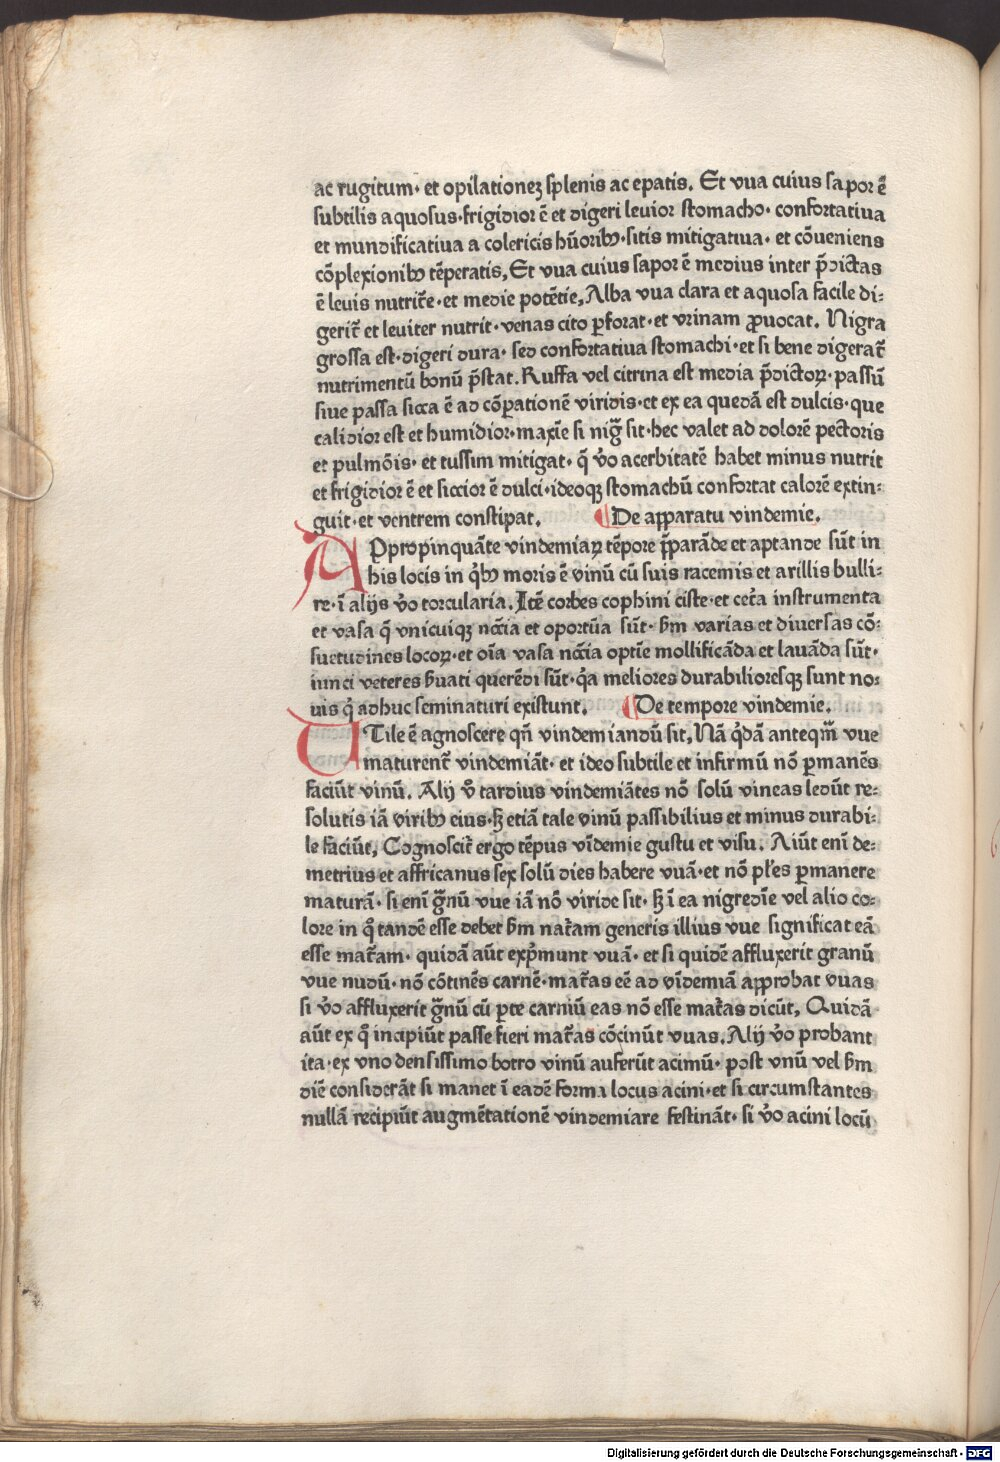 ac rugitum· et opilationeʒ splenis ac epatis. Et vua cuius sapor ē
subtilis aquosus·frigidior ē et digeri leuior stomacho· confortatiua
et mundificatiua a colericis hūoribꝰ·sitis mitigatiua· et cōueniens
cōplexionibꝰ tēperatis, Et vua cuius sapor ē medius inter p̄dictas
ē leuis nutrit̄e·et medie potētie, Alba vua clara et aquosa facile di:
gerit̄ et leuiter nutrit·venas cito ꝑforat·et vrinam ꝓuocat. Nigra
grossa est·digeri dura· sed confortatiua stomachi·et si bene digerat̄
nutrimentū bonū p̄stat. Ruffa vel citrina est media p̄dictoꝝ·passū
siue passa sicca ē ad cōꝑationē viridis·et ex ea quedā est dulcis·que
calidior est et humidior·maxīe si niḡ sit·hec valet ad dolorē pectoris
et pulmōis· et tussim mitigat· q̄ v̓o acerbitatē habet minus nutrit
et frigidior ē et siccior ē dulci·ideoqꝫ stomachū confortat calorē extin:
guit·et ventrem constipat. ¶De apparatu vindemie.
APpropinquāte vindemiaꝝ tēpore p̄parāde et aptande sūt in
his locis in q̓bꝰ moris ē vinū cū suis racemis et arillis bulli:
re·ī alijs v̓o torcularia. Itē corbes cophini ciste·et cet̓a instrumenta
et vasa q̄ vnicuiqꝫ nc̄cia et oportūa sūt· ẜm varias et diuersas cō:
suetudines locoꝝ·et oīa vasa nc̄cia optīe mollificāda et lauāda sūt·
iunci veteres ẜuati querēdi sūt·q̓a meliores durabilioresqꝫ sunt no:
uis q̓ adhuc seminaturi existunt. ¶De tempore vindemie.
UTile ē agnoscere qn̄ vindemiandū sit, Nā q̓dā anteqm̄ vue
maturent̄ vindemiāt· et ideo subtile et infirmū nō ꝑmanēs
faciūt vinū. Alij v̓o tardius vindemiātes nō solū vineas ledūt re:
solutis iā viribꝰ eius·ꜩ etiā tale vinū passibilius et minus durabi:
le faciūt, Cognoscit̄ ergo tēpus vīdemie gustu et visu. Aiūt enī de:
metrius et affricanus sex solū dies habere vuā·et nō pl̓es ꝑmanere
maturā· si enī g̓nū vue iā nō viride sit· ꜩ ī ea nigredīe vel alio co:
lore in q̓ tandē esse debet ẜm nat̓am generis illius vue significat eā
esse mat̓am· quidā aūt exp̓munt vuā· et si quidē affluxerit granū
vue nudū· nō cōtinēs carnē·mat̓as eē ad vīdemiā approbāt vuas
si v̓o affluxerit g̓nū cū ꝑte carniū eas nō esse mat̓as dicūt, Quidā
aūt ex q̓ incipiūt passe fieri mat̓as cōcinūt vuas. Alij v̓o probant
ita·ex vno densissimo botro vinū auferūt acimū· post vnū vel ẜm
diē considerāt si manet ī eadē forma locus acini·et si circumstantes
nullā recipiūt augmētationē vindemiare festināt· si v̓o acini locū
Digitalisierung gefördert durch die Deutsche Forschungsgemeinschaft - DFG